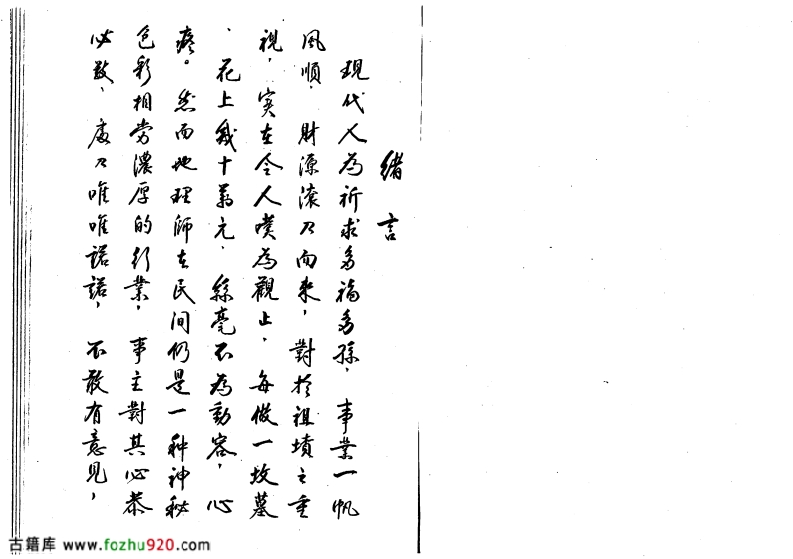 緒言
現代人為祈求多福多孫，事業一帆
風順，財源滾々而來，對於祖墳之重
視，实在令人嘆為觀止，每做一坟墓
、花上幾十萬元，絲毫不為動容，心
疼。然而地理師在民間仍是一种神秘
色彩相当濃厚的行業，事主對其必恭
必敬，處々唯唯諾諾，不敢有意見，
古籍库 www.fozhu920.com